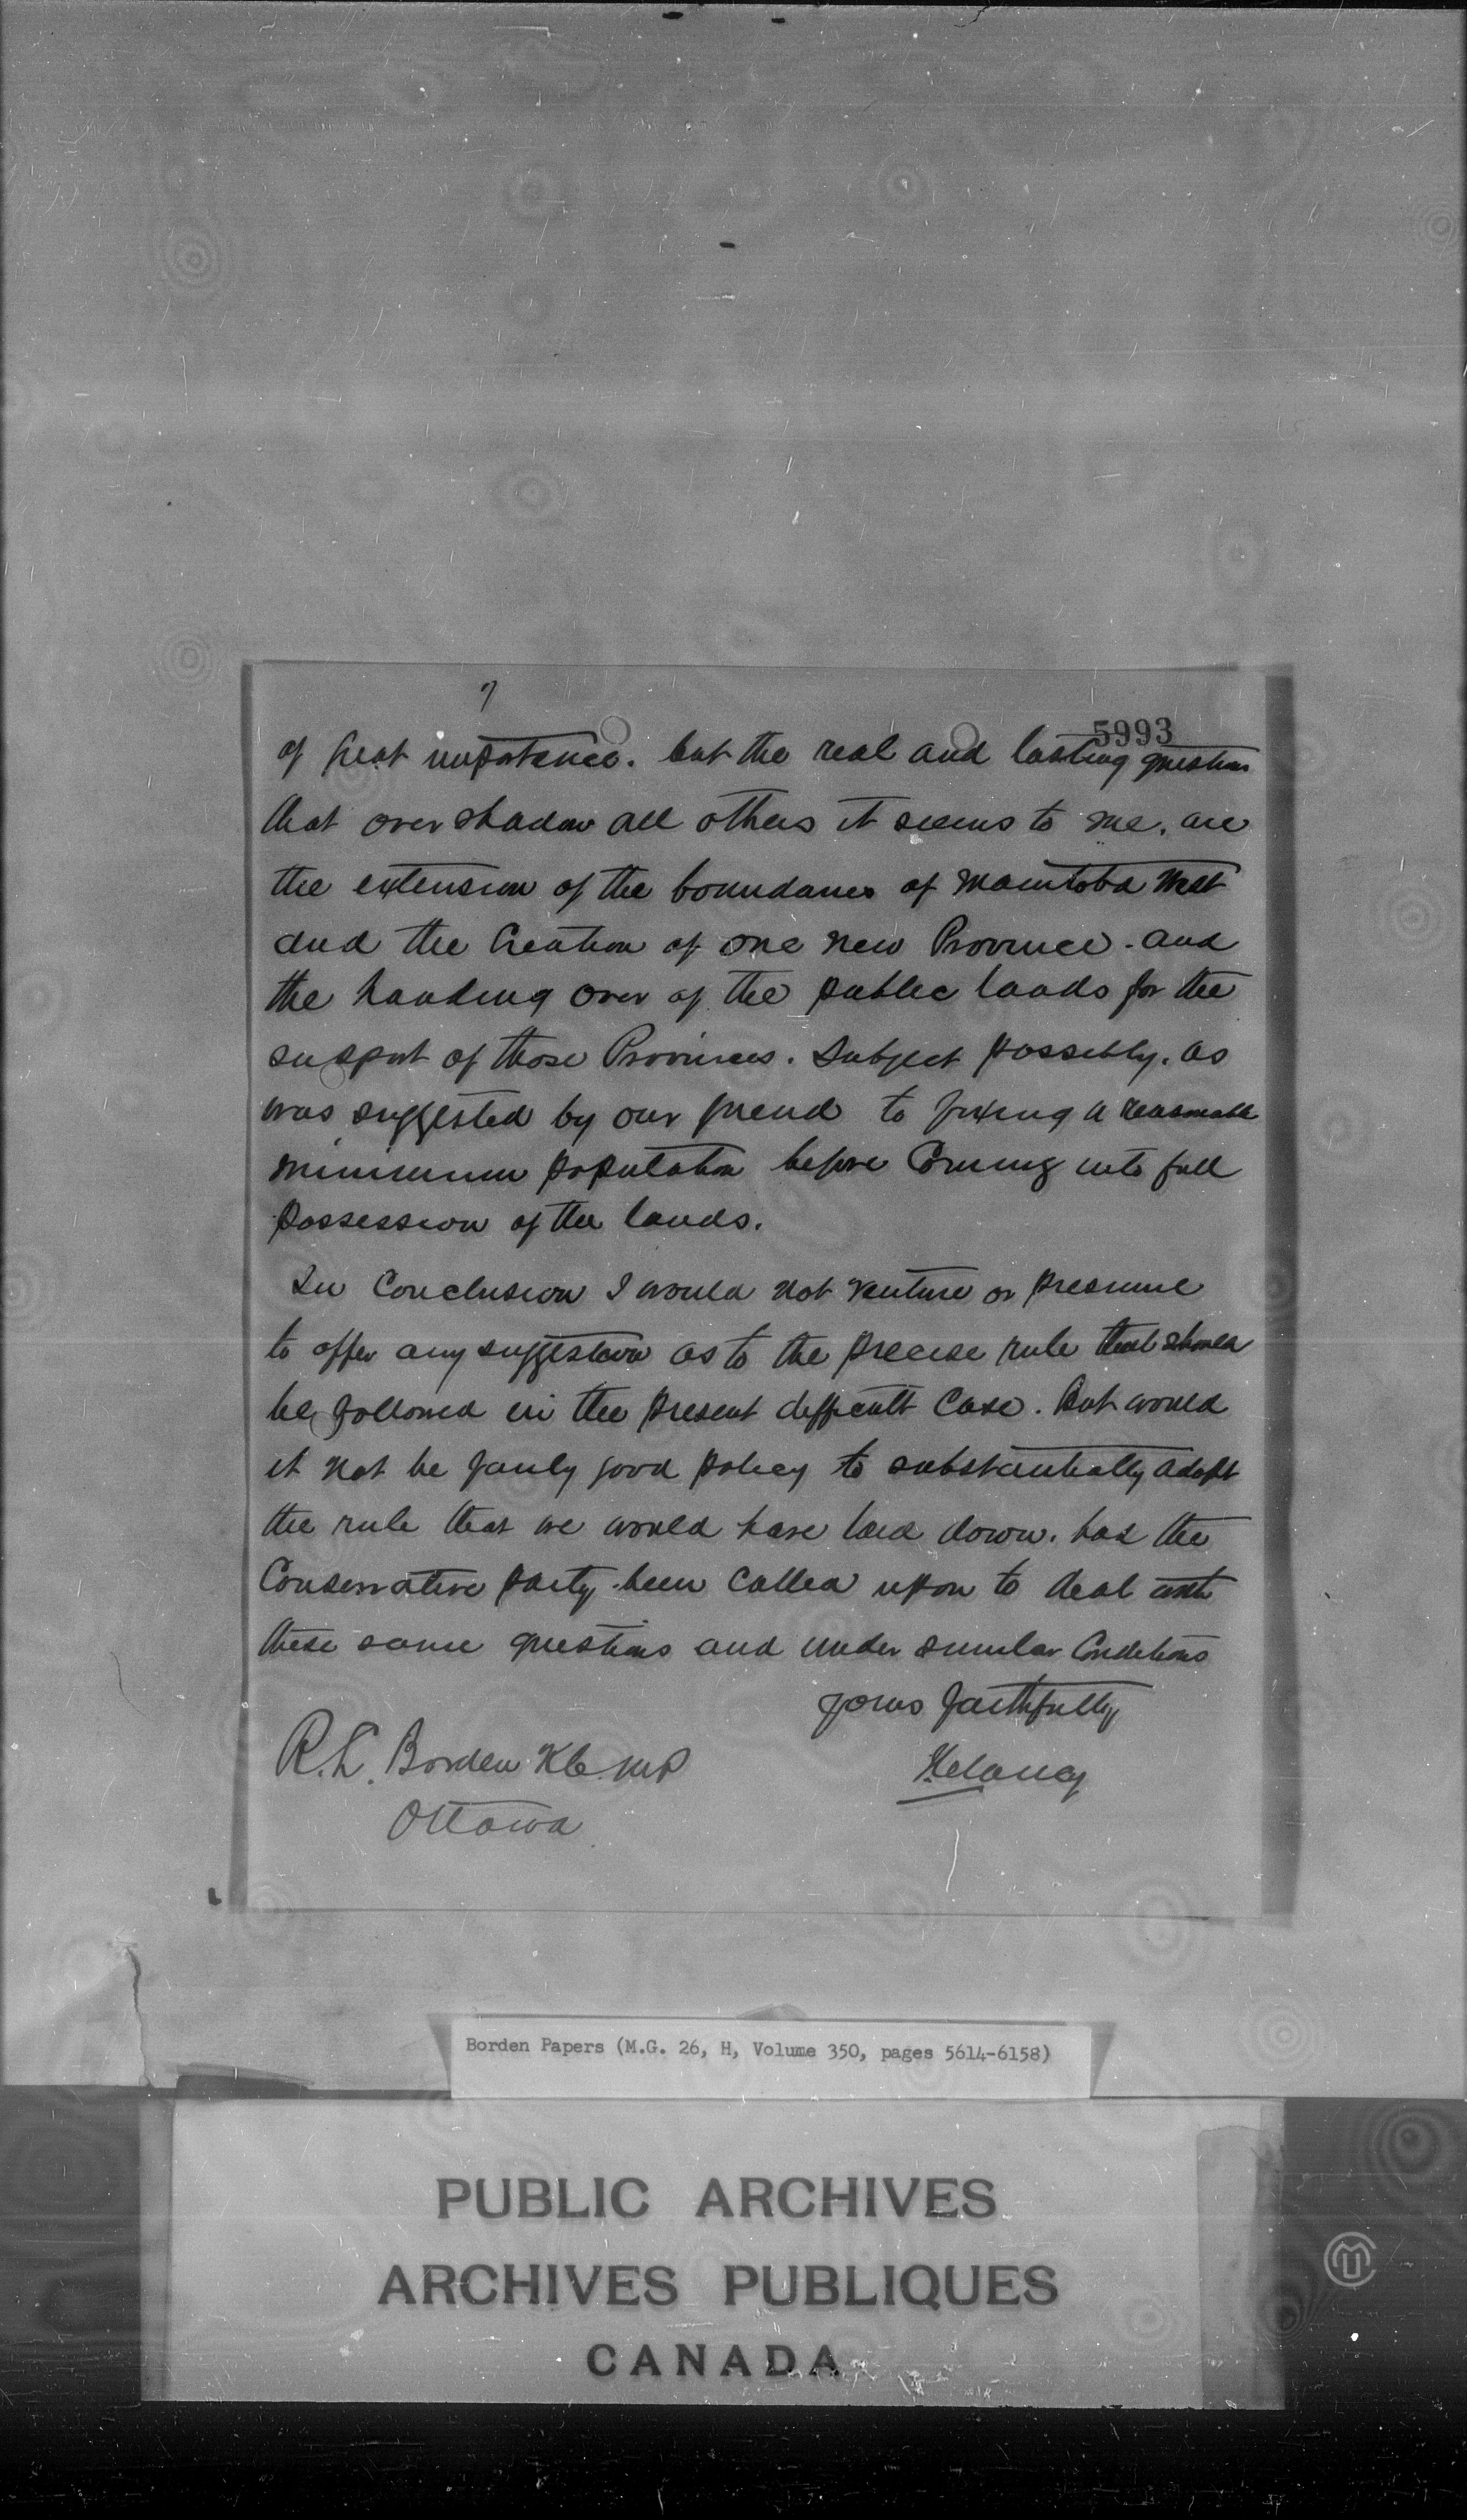 7
5993
of great importance. but the real and lasting questions
that over shadow all others it seems to me. are
the extension of the boundaries of Manitoba West
and the Creation of one new Province. and
the handing over of the public lands for the
support of those Provinces. Subject possibly. as
was suggested by our friend to fixing a reasonable
minimum population before Coming into full
possession of the lands.
In Conclusion I would not venture or presume
to offer any suggestion as to the precise rule that should
be followed in the present difficult Case. But would
it not be fairly good policy to substantially adopt
the rule that we would have laid down. had the
Conservative party been called upon to deal with
these same questions and under similar Conditions
Yours faithfully
R. L. Borden KC. MP
Ottawa
Borden Papers (M.G. 26, H, Volume 350, pages 5614-6158)
PUBLIC ARCHIVES
ARCHIVES PUBLIQUES
CANADA